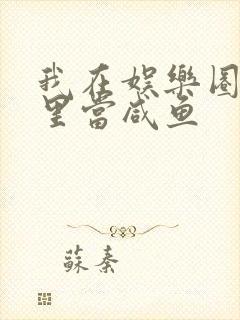 我在娱樂圈
里當咸鱼
蘇秦